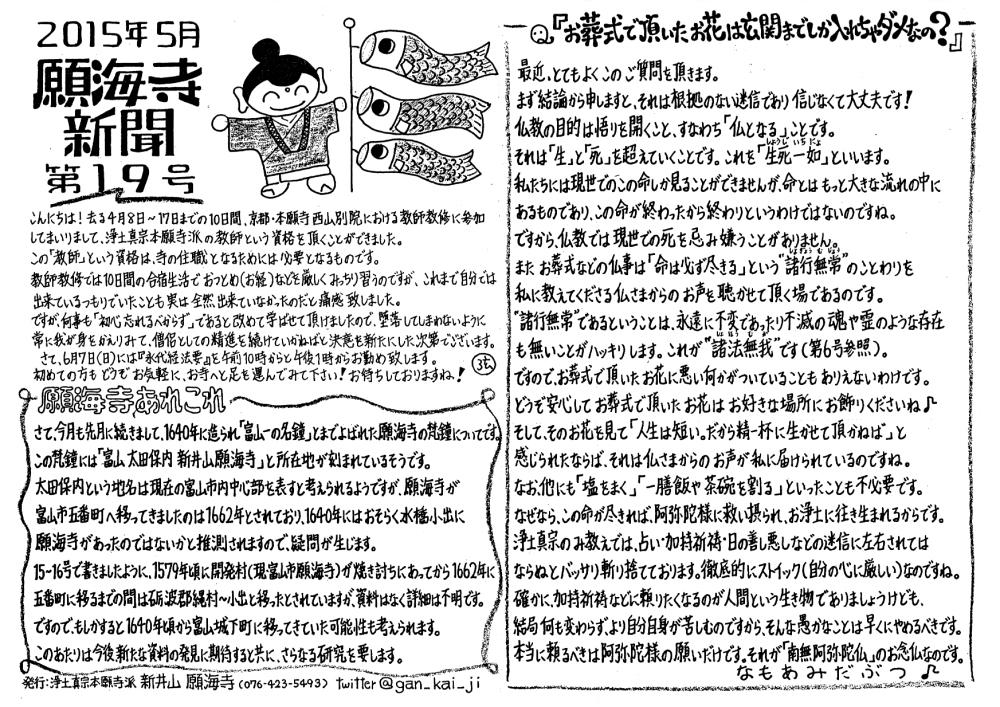 2015年5月
願海寺
新聞
第19号
こんにちは！去る4月8日～17日までの10日間、京都・本願寺西山別院における教師教修に参加
してまいりまして、浄土真宗本願寺派の教師という資格を頂くことができました。
この「教師」という資格は、寺の住職となるためには必要となるものです。
教師教修では10日間の合宿生活でおつとめ(お経)などを厳しくみっちり習うのですが、これまで自分では
出来ているつもりでいたことも実は全然出来ていなかったのだと痛感致しました。
ですが、何事も「初心忘れるべからず」であると改めて学ばせて頂けましたので、堕落してしまわないように
常に我が身をかえりみて、僧侶としての精進を続けていかねばと決意を新たにした次第でございます。
さて、6月7日(日)には『永代経法要』を午前10時からと午後1時からお勤め致します。
初めての方もどうぞお気軽に、お寺へと足を運んでみて下さい！お待ちしておりますね！
願海寺あれこれ
さて、今月も先月に続きまして、1640年に造られ「富山一の名鐘」とまでよばれた願海寺の梵鐘についてです。
この梵鐘には「富山 太田保内 新井山願海寺」と所在地が刻まれているそうです。
太田保内という地名は現在の富山市内中心部を表すと考えられるようですが、願海寺が
富山市五番町へ移ってきましたのは1662年とされており、1640年にはおそらく水橋小出に
願海寺があったのではないかと推測されますので、疑問が生じます。
15～16号で書きましたように、1579年頃に開発村(現富山市願海寺)が焼き討ちにあってから1662年に
五番町に移るまでの間は砺波郡縄村～小出と移ったとされていますが、資料はなく詳細は不明です。
ですので、もしかすると1640年頃から富山城下町に移ってきていた可能性も考えられます。
このあたりは今後新たな資料の発見に期待すると共に、さらなる研究を要します。
発行：浄土真宗本願寺派 新井山 願海寺 (076-423-5493) twitter@gan_kai_ji
Q『お葬式で頂いたお花は玄関までしか入れちゃダメなの？』
最近、とてもよくこのご質問を頂きます。
まず結論から申しますと、それは根拠のない迷信であり信じなくて大丈夫です！
仏教の目的は悟りを開くこと、すなわち「仏となる」ことです。
しょうじいちにょ
それは「生」と「死」を超えていくことです。これを「生死一如」といいます。
私たちには現世でのこの命しか見ることができませんが、命とはもっと大きな流れの中に
あるものであり、この命が終わったから終わりというわけではないのですね。
ですから、仏教では現世での死を忌み嫌うことがありません。
しょぎょうむじょう
またお葬式などの仏事は「命は必ず尽きる」という"諸行無常"のことわりを
私に教えてくださる仏さまからのお声を聴かせて頂く場であるのです。
"諸行無常"であるということは、永遠に不変であったり不滅の魂や霊のような存在
しょほうむが
も無いことがハッキリします。これが"諸法無我"です(第6号参照)。
ですので、お葬式で頂いたお花に悪い何かがついていることもありえないわけです。
どうぞ安心してお葬式で頂いたお花はお好きな場所にお飾りくださいね♪
そして、そのお花を見て「人生は短い。だから精一杯に生かせて頂かねば」と
感じられたならば、それは仏さまからのお声が私に届けられているのですね。
なお、他にも「塩をまく」「一膳飯や茶碗を割る」といったことも不必要です。
なぜなら、この命が尽きれば、阿弥陀様に救い摂られ、お浄土に往き生まれるからです。
浄土真宗のみ教えでは、占い・加持祈祷・日の善し悪しなどの迷信に左右されては
ならぬとバッサリ斬り捨てております。徹底的にストイック(自分の心に厳しい)なのですね。
確かに、加持祈祷などに頼りたくなるのが人間という生き物でありましょうけども、
結局何も変わらず、より自分自身が苦しむのですから、そんな愚かなことは早くにやめるべきです。
本当に頼るべきは阿弥陀様の願いだけです。それが「南無阿弥陀仏」のお念仏なのです。
なもあみだぶつ♪